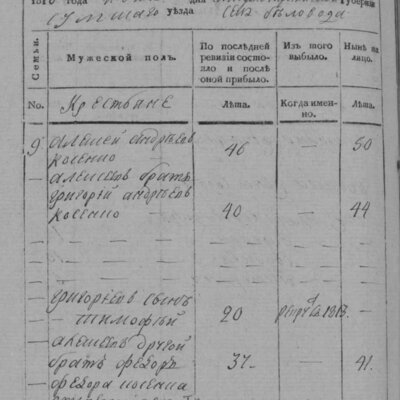 года
дня
Губерніи
Сумшаго уѣзда Села бѣловода
Семьи.
Мужескій полъ.
По послѣдней ревизіи состояло и послѣ оной прибыло.
Изъ того выбыло.
Нынѣ на лицо.
No.
Крестьяне
Лѣта.
Когда именно.
Лѣта.
9 алексей андрѣевъ
косенко — 46 — 50
— алексѣевъ братъ
григорій андрѣевъ
косенко — 40 — 44
григорьевъ сынъ
тимофѣй 20 1813.
— алексѣевъ другой
братъ федоръ 37. — 41.
— федора косенка